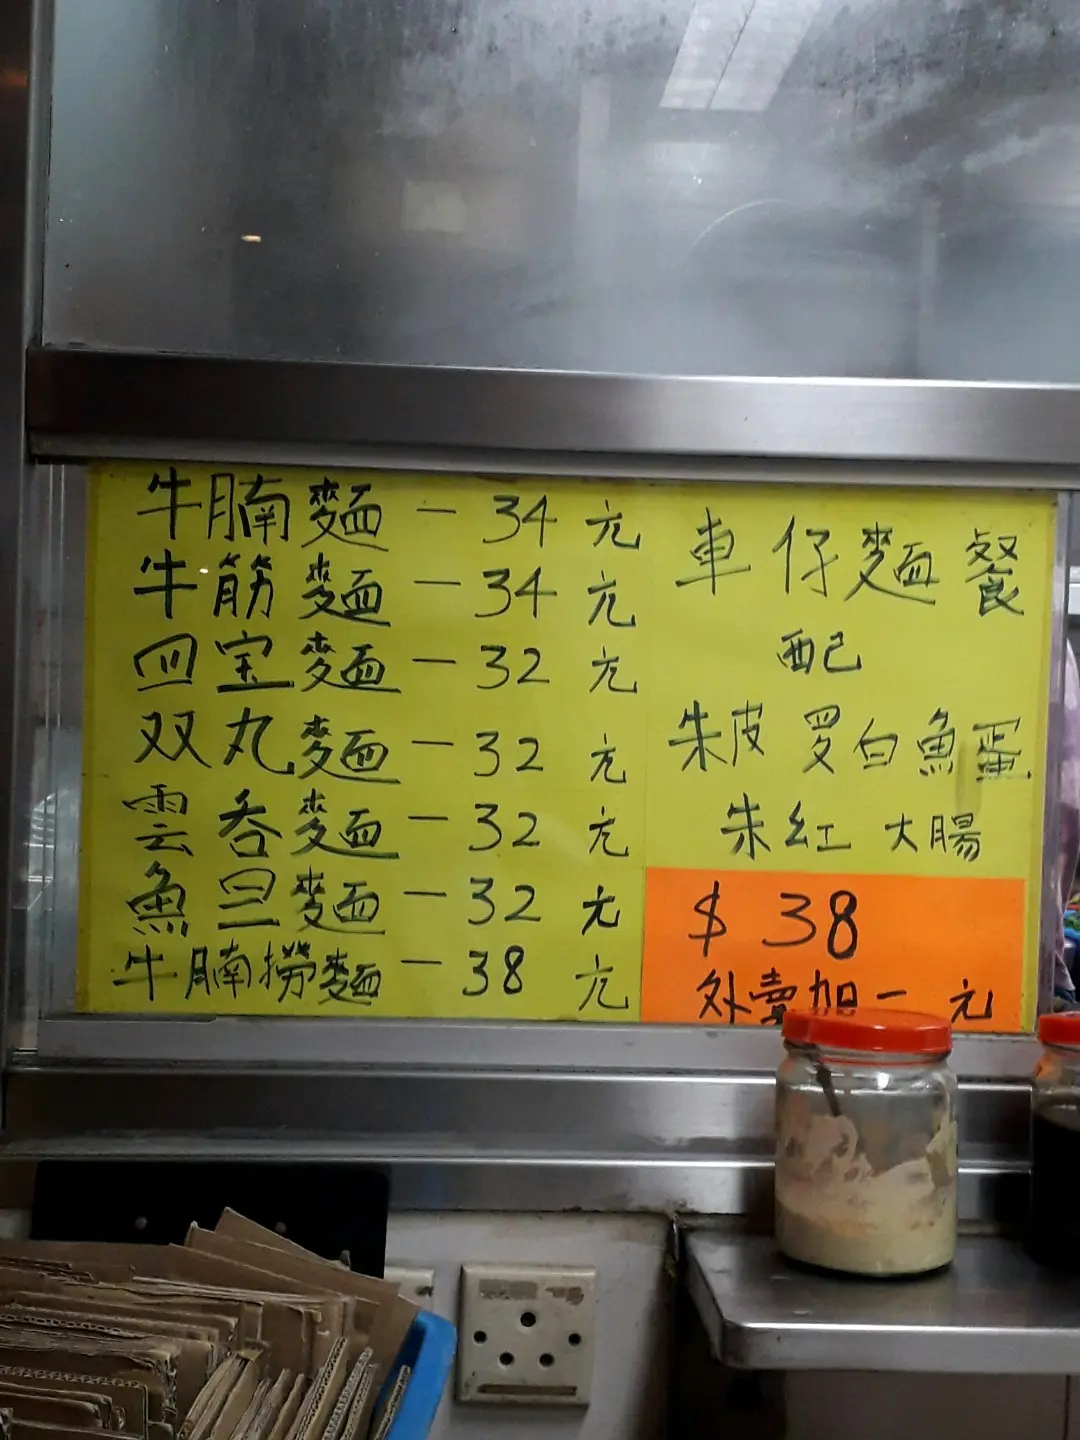 牛腩麵 — 34 元
牛筋麵 — 34 元
四宝麵 — 32 元
双丸麵 — 32 元
雲吞麵 — 32 元
魚旦麵 — 32 元
牛腩撈麵 — 38 元
車仔麵餐
配
朱皮 罗白 魚蛋
朱紅 大腸
$ 38
外賣加一元